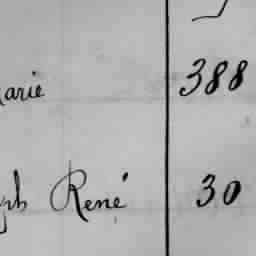 arie 388
ph René 30